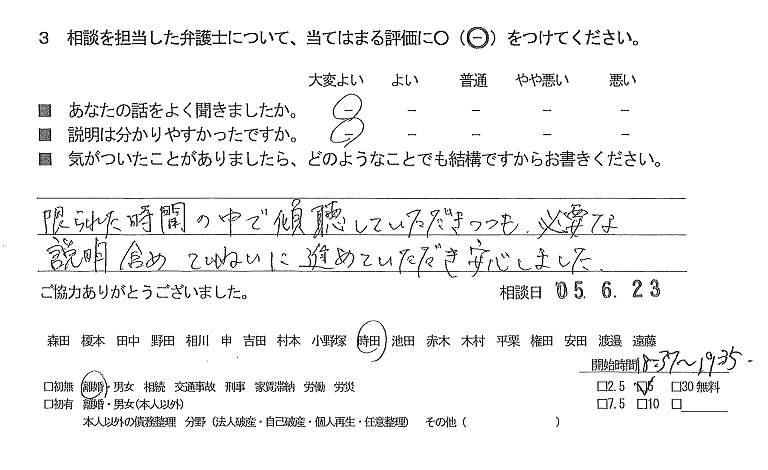 3 相談を担当した弁護士について、当てはまる評価に○（㊀）をつけてください。
大変よい よい 普通 やや悪い 悪い
■ あなたの話をよく聞きましたか。 － － － － －
■ 説明は分かりやすかったですか。 － － － － －
■ 気がついたことがありましたら、どのようなことでも結構ですからお書きください。
限られた時間の中で傾聴していただきつつも、必要な
説明含めていねいに進めていただき安心しました。
ご協力ありがとうございました。 相談日 '05.6.23
森田 榎本 田中 野田 相川 申 吉田 村本 小野塚 時田 池田 赤木 木村 平栗 権田 安田 渡邉 遠藤
開始時間 18:37～19:35.
□初無 離婚・男女 相続 交通事故 刑事 家賃滞納 労働 労災 □2.5 □5 □30無料
□初有 離婚・男女(本人以外) □7.5 □10 □
本人以外の債務整理 分野（法人破産・自己破産・個人再生・任意整理） その他（ ）